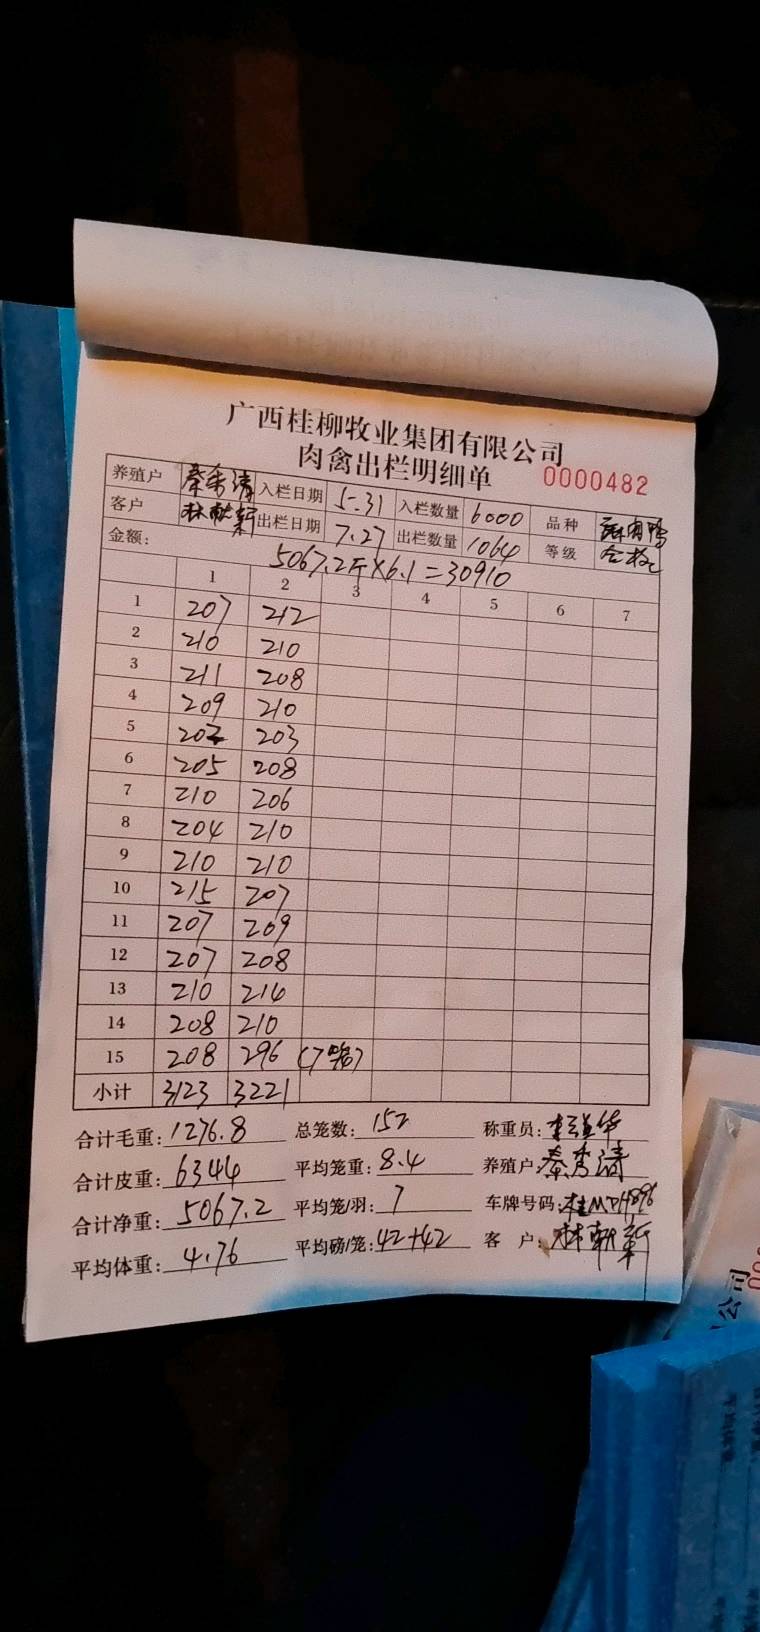 广西桂柳牧业集团有限公司
肉禽出栏明细单 0000482
养殖户 秦秀清 入栏日期 5.31 入栏数量 6000 品种 麻肉鸭
客户 林轩新 出栏日期 7.27 出栏数量 1064 等级 合格
金额: 5067.2斤×6.1=30910
1 2 3 4 5 6 7
1 207 212
2 210 210
3 211 208
4 209 210
5 202 203
6 205 208
7 210 206
8 204 210
9 210 210
10 215 207
11 207 209
12 207 208
13 210 214
14 208 210
15 208 296 (7笼)
小计 3123 3221
合计毛重: 1276.8 总笼数: 152 称重员:
合计皮重: 6344 平均笼重: 8.4 养殖户: 秦秀清
合计净重: 5067.2 平均笼/羽: 7 车牌号码:
平均体重: 4.76 平均磅/笼: 42+42 客户: 林轩新